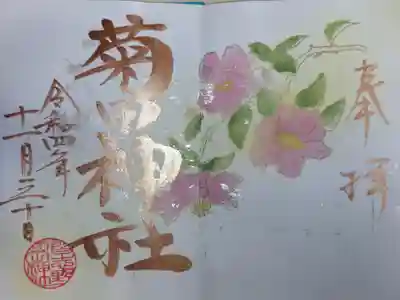 奉拝
菊田神社
令和四年
十一月二十日